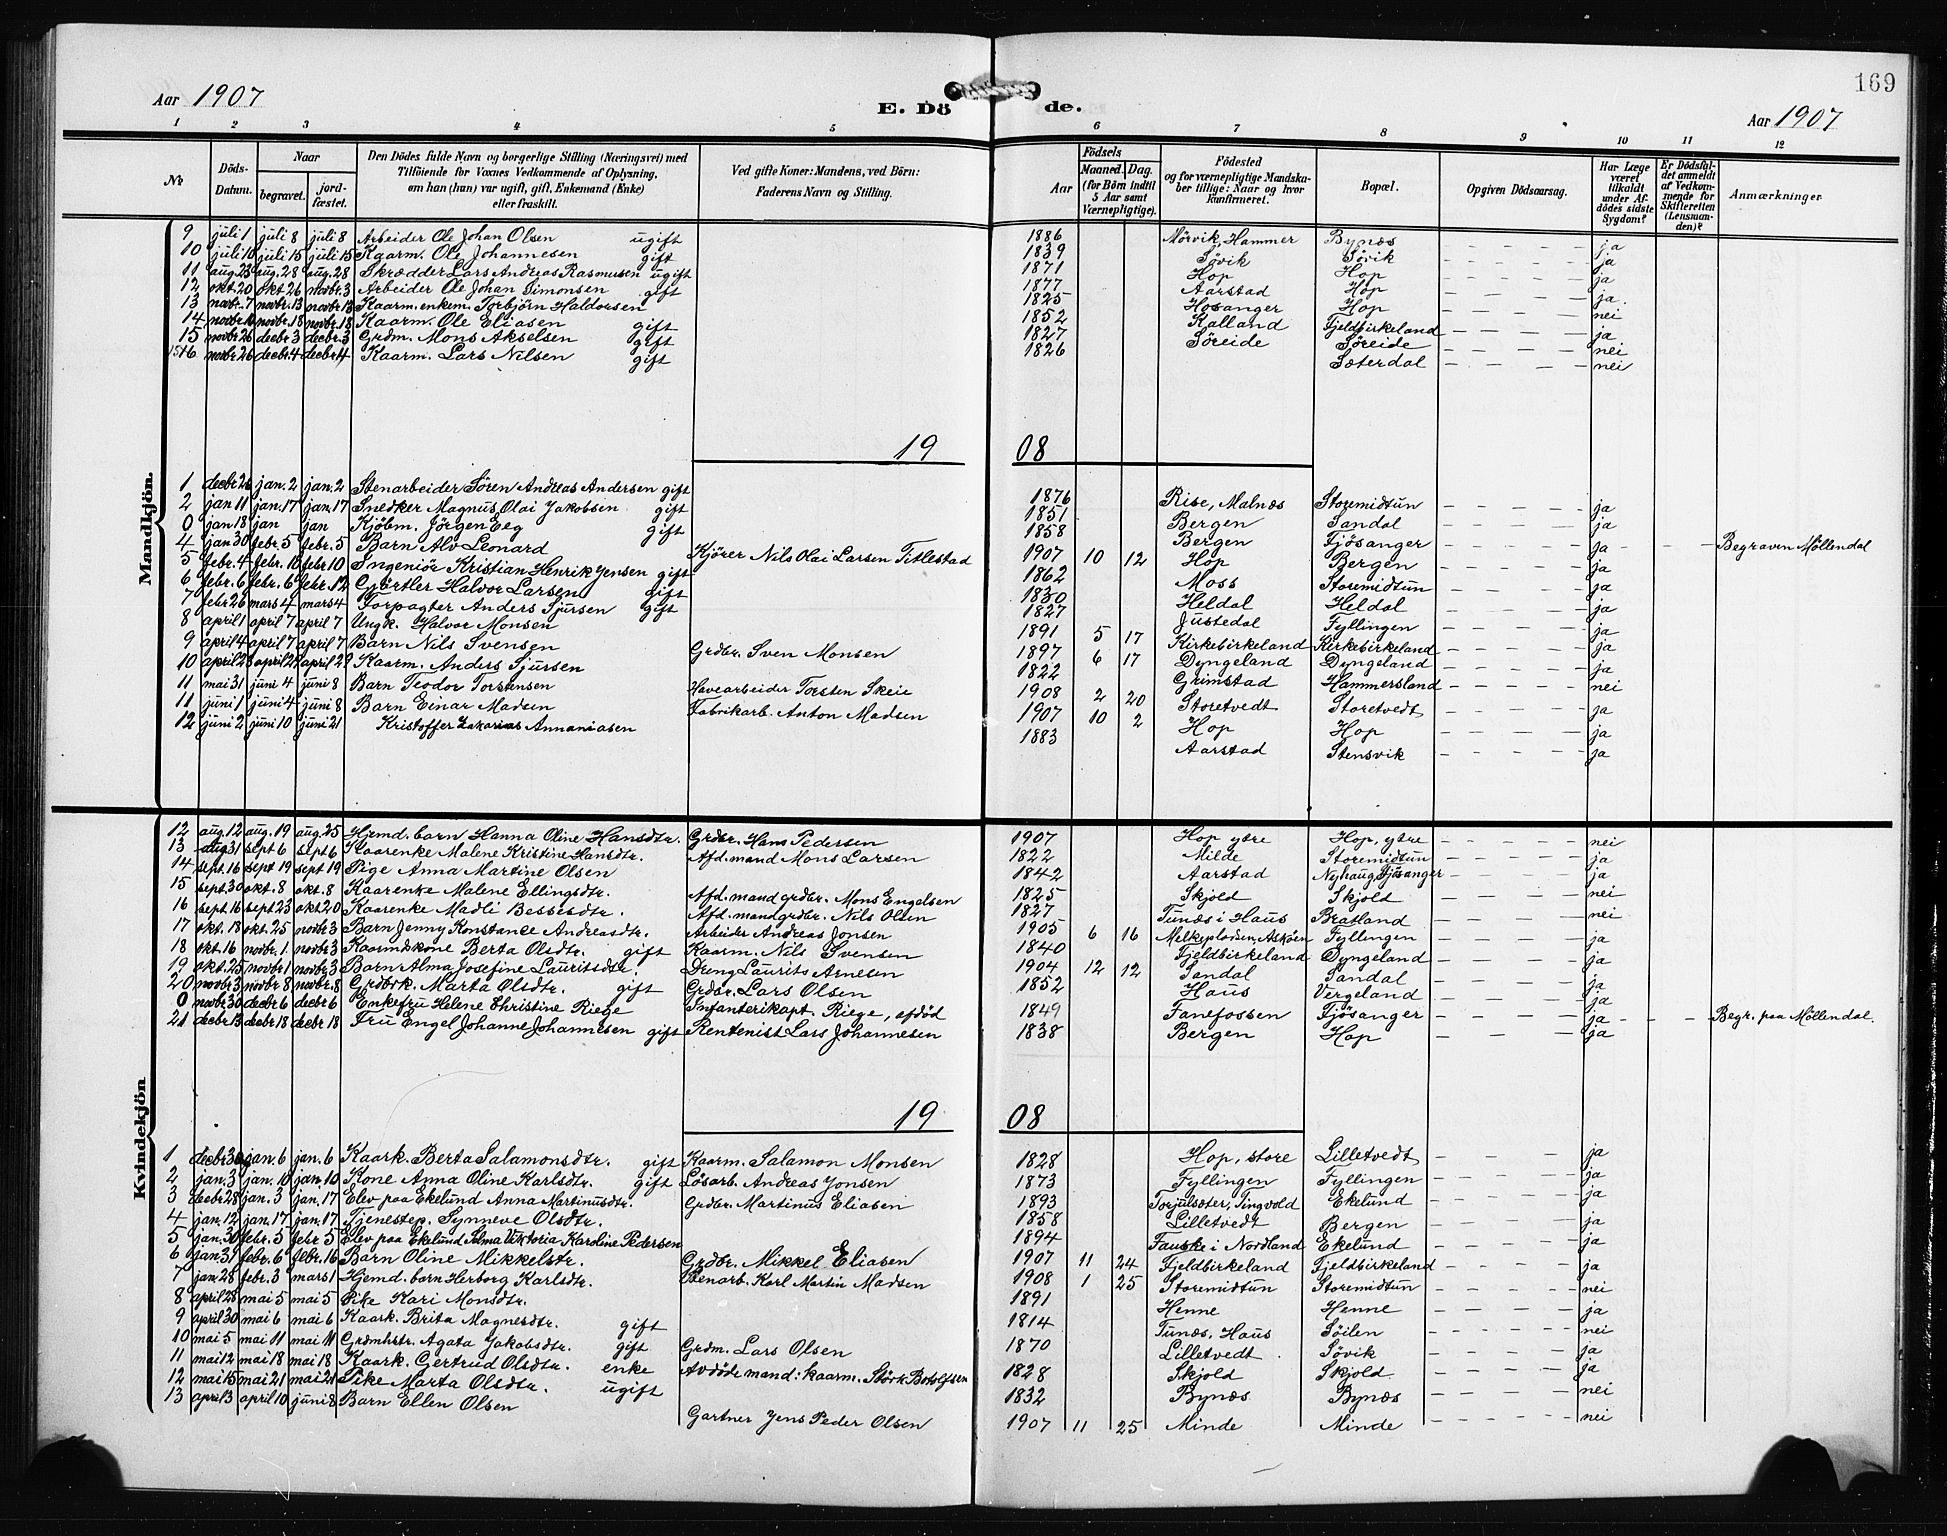 169
Aar 1907 E. Dö de. Aar 1907
1 2 3 4 5 6 7 8 9 10 11 12
№ Döds-Datum. Naar begravet. jord-fæstet. Den Dödes fulde Navn og borgerlige Stilling (Næringsvei) med Tilföiende for Voxnes Vedkommende af Oplysning, om han (hun) var ugift, gift, Enkemand (Enke) eller fraskilt. Ved gifte Koner: Mandens, ved Börn: Faderens Navn og Stilling. Födsels Aar Maaned. Dag. (for Börn indtil 5 Aar samt Værnepligtige). Födested og for værnepligtige Mandskaber tillige: Naar og hvor konfirmeret. Bopæl. Opgiven Dödsaarsag. Har Læge været tilkaldt under Afdödes sidste Sygdom? Er Dödsfaldet anmeldt af Vedkommende for Skifteretten (Lensmanden)? Anmærkninger
Mandkjön.
9 juli 1 juli 8 juli 8 Arbeider Ole Johan Olsen ugift 1886 Mörvik, Hammer Bynæs ja
10 juli 10 juli 15 juli 15 Kaarm. Ole Johannesen gift 1839 Søvik Søvik ja
11 aug 23 aug. 28 aug. 28 Skrædder Lars Andreas Rasmusen ugift 1871 Hop Hop ja
12 okt. 20 okt 26 novbr. 3 Arbeider Ole Johan Simonsen gift 1877 Aarstad Hop ja
13 novbr. 7 novbr. 13 novbr. 13 Kaarm. enkem. Torbjörn Haldorsen 1825 Hosanger Hop nei
14 novbr. novbr. 18 novbr. 18 Kaarm. Ole Eliasen gift 1852 Kalland Fjeldbirkeland ja
15 novbr 26 decbr 3 decbr. 3 Grdm. Mons Akselsen gift 1827 Søreide Søreide nei
16 novbr. 26 decbr. 4 decbr. 4 Kaarm. Lars Nilsen gift 1826 Sæterdal nei
19 08
1 decbr 26 jan. 2 jan. 2 Stenarbeider Sören Andreas Andersen gift 1876 Rise, Malnæs Storemidtun ja
2 jan 11 jan. 17 jan. 17 Snedker Magnus Olai Jakobsen gift 1851 Bergen Sandal ja
0 jan 18 jan jan Kjöbm. Jörgen Eeg gift 1858 Bergen Fjösanger ja Begraven Möllendal
4 jan 30 febr. 5 febr. 5 Barn Alv Leonard Kjörer Nils Olai Larsen Titlestad 1907 10 12 Hop Bergen ja
5 febr. 4 febr. 10 febr 10 Ingeniör Kristian Henrik Jensen gift 1862 Moss Storemidtun ja
6 febr. 6 febr. 6 febr. 12 Gjörtler Halvor Larsen gift 1830 Heldal Heldal ja
7 febr 26 mars 4 mars 4 Forpagter Anders Sjursen gift 1827 Justedal Fyllingen ja
8 april 1 april 7 april 7 Ungk. Halvor Monsen 1891 5 17 Kirkebirkeland Kirkebirkeland ja
9 april 4 april 7 april 7 Barn Nils Svensen Grdbr. Sven Monsen 1897 6 17 Dyngeland Dyngeland ja
10 april 23 april 29 april 29 Kaarm. Anders Sjursen 1822 Grimstad Hammersland nei
11 mai 31 juni 4 juni 8 Barn Teodor Torstensen Havearbeider Torsten Skeie 1908 2 20 Storetvedt Storetvedt ja
11 juni 1 juni 4 juni 8 Barn Einar Madsen Fabrikarb. Anton Madsen 1907 10 2 Hop Hop ja
12 juni 2 juni 10 juni 21 Kristoffer Zakarias Annaniasen 1883 Aarstad Stensvik ja
Kvindekjön
12 aug. 12 aug. 19 aug. 25 Hjemd. barn Hanna Oline Hansdtr. Grdbr. Hans Pedersen 1907 Hop ytre Hop, ytre nei
13 aug 31 sept 6 sept 6 Kaarenke Malene Kristine Hansdtr. Afd. mand Mons Larsen 1822 Milde Storemidtun ja
14 sept. 16 sept 19 sept 19 Pige Anna Martine Olsen 1842 Aarstad Nyhaug, Fjösanger ja
15 sept. 30 okt. 8 okt. 8 Kaarenke Malene Ellingsdtr. Afd. mand grdbr. Mons Engelsen 1825 Skjold Skjold nei
16 sept. 16 sept 23 okt 20 Kaarenke Madli Bessesdtr. Afd. mand grdbr. Nils Olsen 1827 Tunæs i Haus Bratland nei
17 okt. 18 okt. 25 novbr 3 Barn Jenny Konstance Andreasdtr. Arbeider Andreas Jonsen 1905 6 16 Melkeplassen, Askøen Fyllingen ja
18 okt. 16 novbr. 1 novbr. 3 Kaarmdskone Berta Olsdtr. gift Kaarm. Nils Svensen 1840 Fjeldbirkeland Dyngeland ja
19 okt. 25 novbr 1 novbr. 3 Barn Alma Josefine Lauritsdtr. Dreng Laurits Arnesen 1904 12 12 Sandal Sandal ja
20 novbr. 3 novbr. 8 novbr. 8 Grdbrk. Marta Olsdtr. gift Grdbr. Lars Olsen 1852 Haus Vergeland ja
0 novbr 30 decbr. 6 decbr 6 Enkefru Helene Christine Riege Infanterikapt. Riege, afdöd 1849 Fanefossen Fjösanger ja Begr. paa Möllendal.
21 decbr. 13 decbr. 18 decbr. 18 Fru Engel Johanne Johannesen gift Rentenist Lars Johannesen 1838 Bergen Hop ja
19 08
1 decbr. 30 jan. 6 jan. 6 Kaark. Berta Salamonsdtr. gift Kaarm. Salamon Monsen 1828 Hop, store Lilletvedt ja
2 jan. 3 jan. 10 jan. 10 Kone Anna Oline Karlsdtr. gift Løsarb. Andreas Jonsen 1873 Fyllingen Fyllingen ja
3 decbr 28 jan. 3 jan. 17 Elev paa Ekelund Anna Martinusdtr. Grdbr. Martinus Eliasen 1893 Torjulsæter, Tingvold Ekelund ja
4 jan. 12 jan. 17 jan. 17 Tjenestep. Synneve Olsdtr. 1858 Lilletvedt Bergen ja
5 jan. 30 febr. 5 febr 5 Elev paa Ekelund Selma Viktoria Karoline Pedersen 1894 Fauske i Nordland Ekelund ja
6 jan 31 febr. 6 febr. 16 Barn Oline Mikkelstr. Grdbr. Mikkel Eliasen 1907 11 24 Fjeldbirkeland Fjeldbirkeland ja
7 jan. 28 febr. 3 mars 1 Hjemd. barn Herborg Karlsdtr. Stenarb. Karl Martin Madsen 1908 1 25 Storemidtun Storemidtun nei
8 april 28 mai 5 mai 5 Pike Kari Monsdtr. 1891 Henne Henne ja
9 april 30 mai 6 mai 6 Kaark. Brita Magnesdtr. gift 1814 Tunæs, Haus Søilen nei
10 mai 5 mai 11 mai 11 Grdmhstr. Agata Jakobsdtr. gift Grdm. Lars Olsen 1870 Lilletvedt Søvik ja
11 mai 12 mai 18 mai 18 Kaark. Gertrud Olsdtr. enke Avdöde mand: kaarm. Störk Botolfsen 1828 Skjold Skjold ja
12 mai 15 mai 21 mai 21 Pike Marta Olsdtr. ugift 1832 Bynæs Bynæs nei
13 april 3 april 10 juni 8 Barn Ellen Olsen Gartner Jens Peder Olsen 1907 11 25 Minde Minde nei